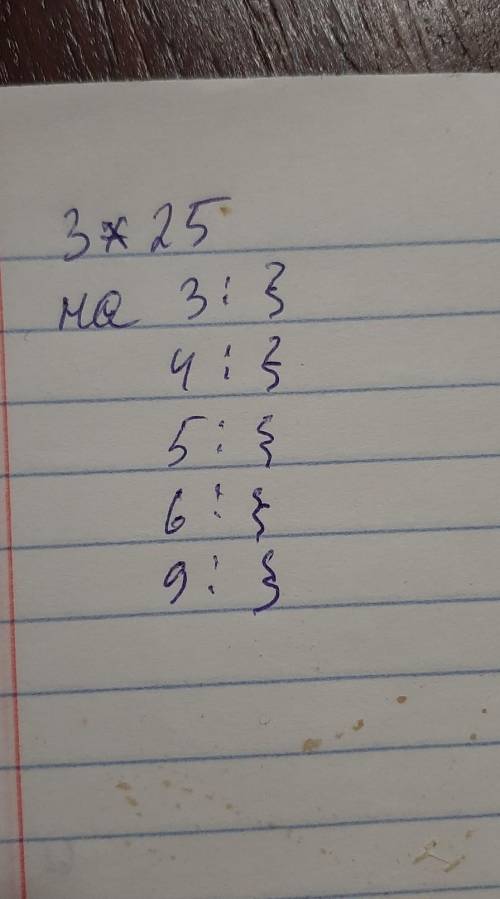 3*25
на 3: }
4: }
5: }
6: }
9: }